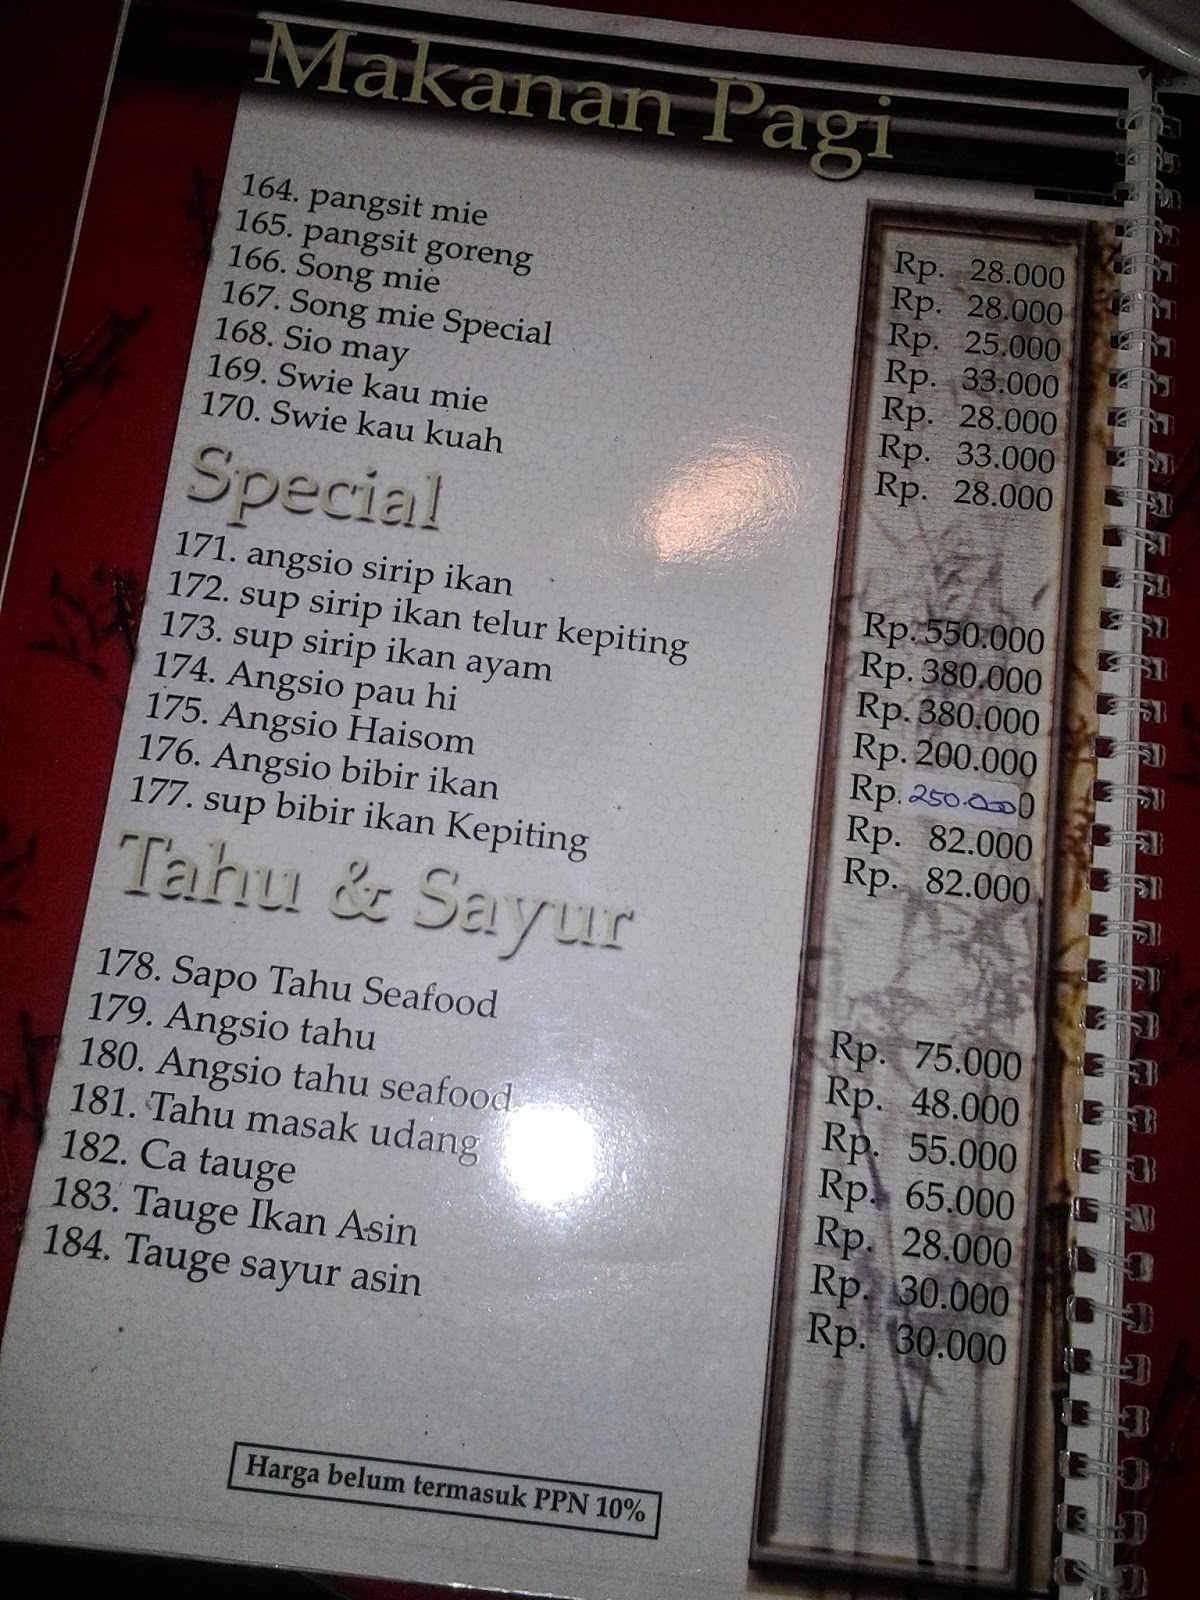 Makanan Pagi
164. pangsit mie Rp. 28.000
165. pangsit goreng Rp. 28.000
166. Song mie Rp. 25.000
167. Song mie Special Rp. 33.000
168. Sio may Rp. 28.000
169. Swie kau mie Rp. 33.000
170. Swie kau kuah Rp. 28.000
Special
171. angsio sirip ikan Rp. 550.000
172. sup sirip ikan telur kepiting Rp. 380.000
173. sup sirip ikan ayam Rp. 380.000
174. Angsio pau hi Rp. 200.000
175. Angsio Haisom Rp. 250.000
176. Angsio bibir ikan Rp. 82.000
177. sup bibir ikan Kepiting Rp. 82.000
Tahu & Sayur
178. Sapo Tahu Seafood Rp. 75.000
179. Angsio tahu Rp. 48.000
180. Angsio tahu seafood Rp. 55.000
181. Tahu masak udang Rp. 65.000
182. Ca tauge Rp. 28.000
183. Tauge Ikan Asin Rp. 30.000
184. Tauge sayur asin Rp. 30.000
Harga belum termasuk PPN 10%